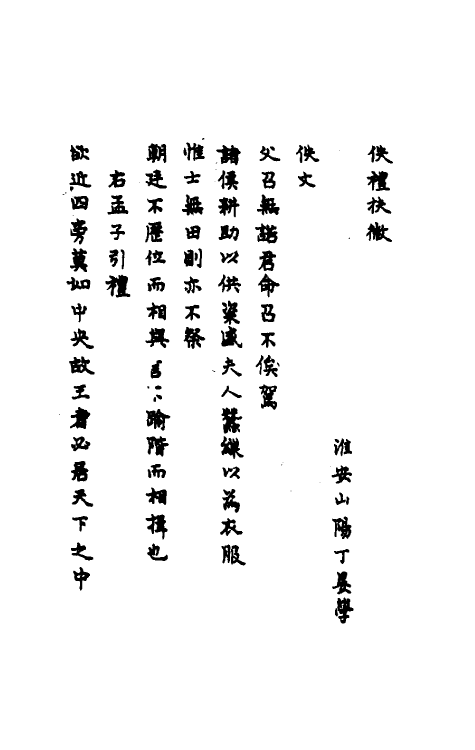 佚禮扶微
淮安山陽丁晏學
佚文
父召無諾君命召不俟駕
諸侯耕助以供粢盛夫人蠶繅以為衣服
惟士無田則亦不祭
朝廷不歷位而相與言不踰階而相揖也
右孟子引禮
欲近四旁莫如中央故王者必居天下之中